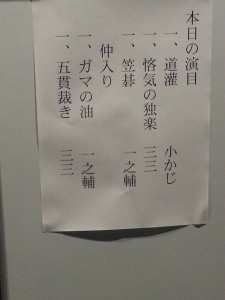 本日の演目
一、道灌 小かじ
一、悋気の独楽 三三
一、笠碁 一之輔
仲入り
一、ガマの油 一之輔
一、五貫裁き 三三